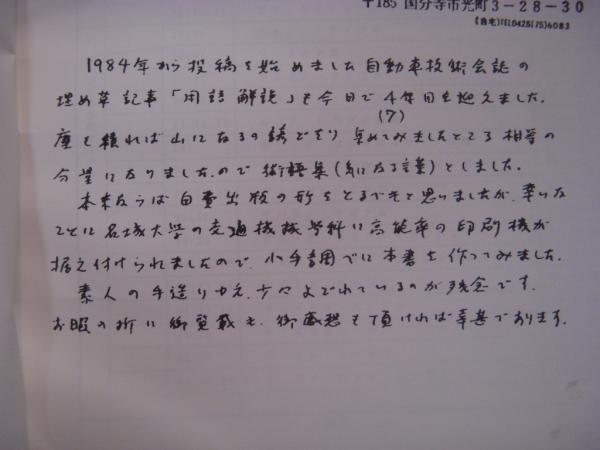 〒185 国分寺市光町3-28-30
(自宅)TEL0425(75)6083
1984年から投稿を始めました自動車技術会誌の
埋め草記事「用語解説」も今日で4年目を迎えました。
(7)
塵も積れば山になるの諺どをり、集めてみましたところ相等の
分量になりました。ので術語集(気になる言葉)としました。
本来ならば自費出版の形をとるべきと思いましたが、幸いな
ことに名城大学の交通機械学科に高能率の印刷機が
据え付けられましたので、小手調べに本書を作ってみました。
素人の手造りゆえ、少々よごれているのが残念です。
お暇の折に御覧戴き、御感想を頂ければ幸甚であります。